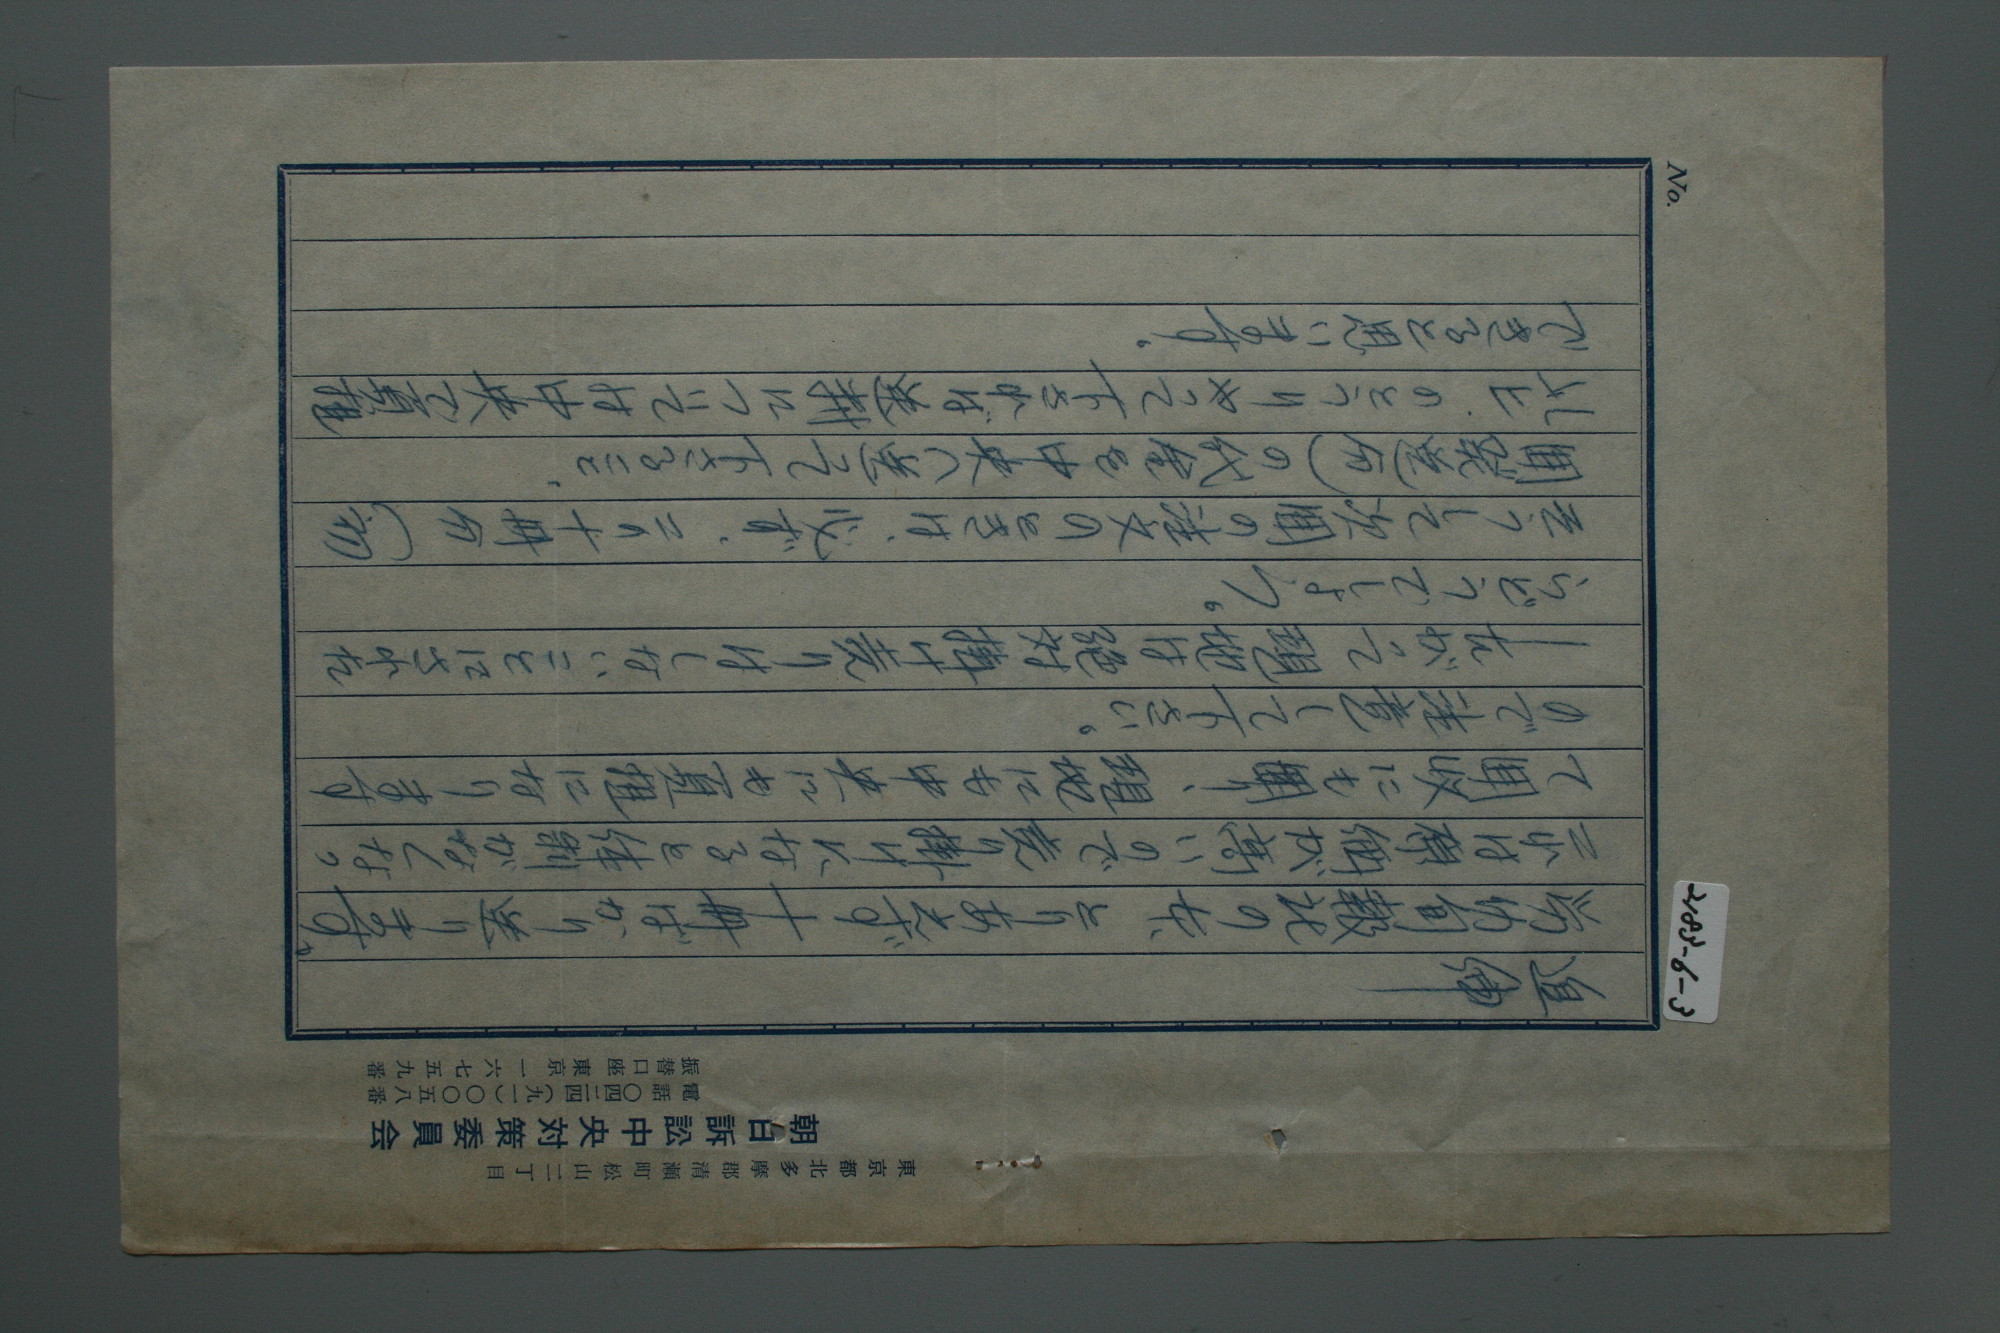 No.
追伸
労旬報社の本、とりあえず十冊ばかり送ります。
これは原価が高いので売り掛けになると体制がなくなっ
て回収にも困り、現地にも中央にも負担になります
ので注意して下さい。
したがって現地は絶対掛け売りはしないことにされた
らどうでしょう。
そうして次回の注文のときは、必ず、この十冊分(初
回発送分)の代金を中央へ送って下さること、
以上、のとおりやって下されば送料については中央で負担
できると思います。
振替口座東京一六七五九番
電話〇四二四(九一)〇〇五八番
朝日訴訟中央対策委員会
東京都北多摩郡清瀬町松山二丁目